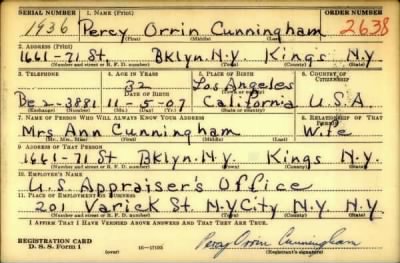 SERIAL NUMBER 1. NAME (Print) ORDER NUMBER
1936 Percy Orrin Cunningham 2638
(First) (Middle) (Last)
2. ADDRESS (Print)
1661-71 St BKlyn. N.Y. Kings N.Y
(Number and street or R. F. D. number) (Town) (County) (State)
3. TELEPHONE 4. AGE IN YEARS 5. PLACE OF BIRTH 6. COUNTRY OF CITIZENSHIP
32 Los Angeles
DATE OF BIRTH (Town or county)
Be 2-3881 11-5-07 California U.S.A.
(Exchange) (Number) (Mo.) (Day) (Yr.) (State or country)
7. NAME OF PERSON WHO WILL ALWAYS KNOW YOUR ADDRESS 8. RELATIONSHIP OF THAT PERSON
Mrs Ann Cunningham Wife
(Mr., Mrs., Miss) (First) (Middle) (Last)
9. ADDRESS OF THAT PERSON
1661-71 St BKlyn. N.Y. Kings N.Y.
(Number and street or R. F. D. number) (Town) (County) (State)
10. EMPLOYER'S NAME
U.S. Appraiser's Office
11. PLACE OF EMPLOYMENT OR BUSINESS
201 Varick St. N.Y City N.Y. N.Y.
(Number and street or R. F. D. number) (Town) (County) (State)
I AFFIRM THAT I HAVE VERIFIED ABOVE ANSWERS AND THAT THEY ARE TRUE.
REGISTRATION CARD
D. S. S. Form 1 (over) 16-17105 Percy Orrin Cunningham
(Registrant's signature)